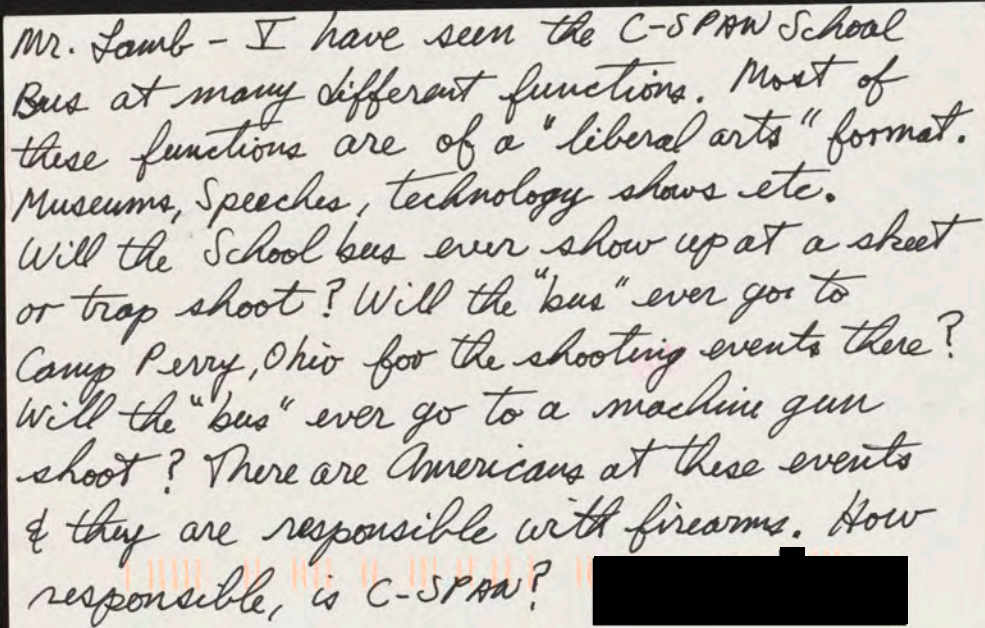 Mr. Lamb - I have seen the C-SPAN School
Bus at many different functions. Most of
these functions are of a "liberal arts" format.
Museums, Speeches, technology shows etc.
Will the School bus ever show up at a skeet
or trap shoot? Will the "bus" ever go to
Camp Perry, Ohio for the shooting events there?
Will the "bus" ever go to a machine gun
shoot? There are Americans at these events
& they are responsible with firearms. How
responsible, is C-SPAN?